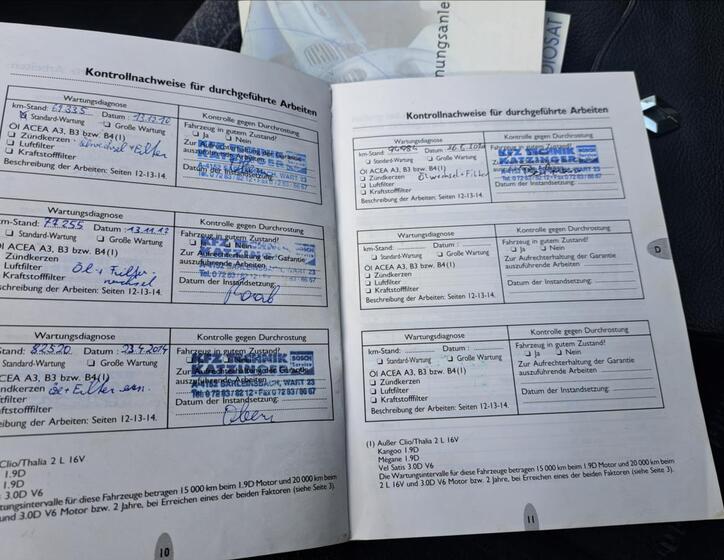 nungsanle
DIOSAT
Kontrollnachweise für durchgeführte Arbeiten
Wartungsdiagnose
Kontrolle gegen Durchrostung
km-Stand: 67335 Datum: 13.12.12
Fahrzeug in gutem Zustand?
Standard-Wartung Große Wartung
Ja Nein
Öl ACEA A3, B3 bzw. B4(1)
Zündkerzen
Luftfilter
Kraftstofffilter
Datum der Instandsetzung:
Beschreibung der Arbeiten: Seiten 12-13-14.
KFZ TECHNIK
KATZINGER
Tel. 0 72 83 / 82 12
Wartungsdiagnose
Kontrolle gegen Durchrostung
m-Stand: 77255 Datum: 13.11.13
Fahrzeug in gutem Zustand?
Standard-Wartung Große Wartung
Nein
l ACEA A3, B3 bzw. B4(1)
Zur Aufrechterhaltung der Garantie
Zündkerzen
auszuführende Arbeiten
Luftfilter Öl + Filter
Kraftstofffilter wechsel
Datum der Instandsetzung:
eschreibung der Arbeiten: Seiten 12-13-14.
KFZ TECHNIK
Wartungsdiagnose
Kontrolle gegen Durchrostung
Stand: 82520 Datum: 23.4.2014
Fahrzeug in gutem Zustand?
Standard-Wartung Große Wartung
CEA A3, B3 bzw. B4(1)
auszuführende Arbeiten
ndkerzen Öl + Filter ern.
tfilter
ftstofffilter
Datum der Instandsetzung:
eibung der Arbeiten: Seiten 12-13-14.
KFZ TECHNIK
KATZINGER
BOSCH
A-4152 SARLEINSBACH, WART 23
Tel. 0 72 83 / 82 12 • Fax 0 72 83 / 86 67
Clio/Thalia 2 L 16V
1.9D
1.9D
3.0D V6
tungsintervalle für diese Fahrzeuge betragen 15 000 km beim 1.9D Motor und 20 000 km beim
und 3.0D V6 Motor bzw. 2 Jahre, bei Erreichen eines der beiden Faktoren (siehe Seite 3).
10
Kontrollnachweise für durchgeführte Arbeiten
Wartungsdiagnose
Kontrolle gegen Durchrostung
km-Stand: Datum:
Standard-Wartung Große Wartung
Öl ACEA A3, B3 bzw. B4(1)
Zündkerzen Ölwechsel + Filter
Luftfilter
Kraftstofffilter
Datum der Instandsetzung:
Beschreibung der Arbeiten: Seiten 12-13-14.
KFZ TECHNIK
KATZINGER
Tel. 0 72 83 / 82 12 • Fax 0 72 83 / 86 67
Wartungsdiagnose
Kontrolle gegen Durchrostung
km-Stand: Datum :
Fahrzeug in gutem Zustand?
Standard-Wartung Große Wartung
Ja Nein
Öl ACEA A3, B3 bzw. B4(1)
Zur Aufrechterhaltung der Garantie
Zündkerzen
auszuführende Arbeiten
Luftfilter
Kraftstofffilter
Datum der Instandsetzung:
Beschreibung der Arbeiten: Seiten 12-13-14.
D
Wartungsdiagnose
Kontrolle gegen Durchrostung
km-Stand: Datum :
Fahrzeug in gutem Zustand?
Standard-Wartung Große Wartung
Ja Nein
Öl ACEA A3, B3 bzw. B4(1)
Zur Aufrechterhaltung der Garantie
Zündkerzen
auszuführende Arbeiten
Luftfilter
Kraftstofffilter
Datum der Instandsetzung:
Beschreibung der Arbeiten: Seiten 12-13-14.
(1) Außer Clio/Thalia 2 L 16V
Kangoo 1.9D
Mégane 1.9D
Vel Satis 3.0D V6
Die Wartungsintervalle für diese Fahrzeuge betragen 15 000 km beim 1.9D Motor und 20 000 km beim
2 L 16V und 3.0D V6 Motor bzw. 2 Jahre, bei Erreichen eines der beiden Faktoren (siehe Seite 3).
11